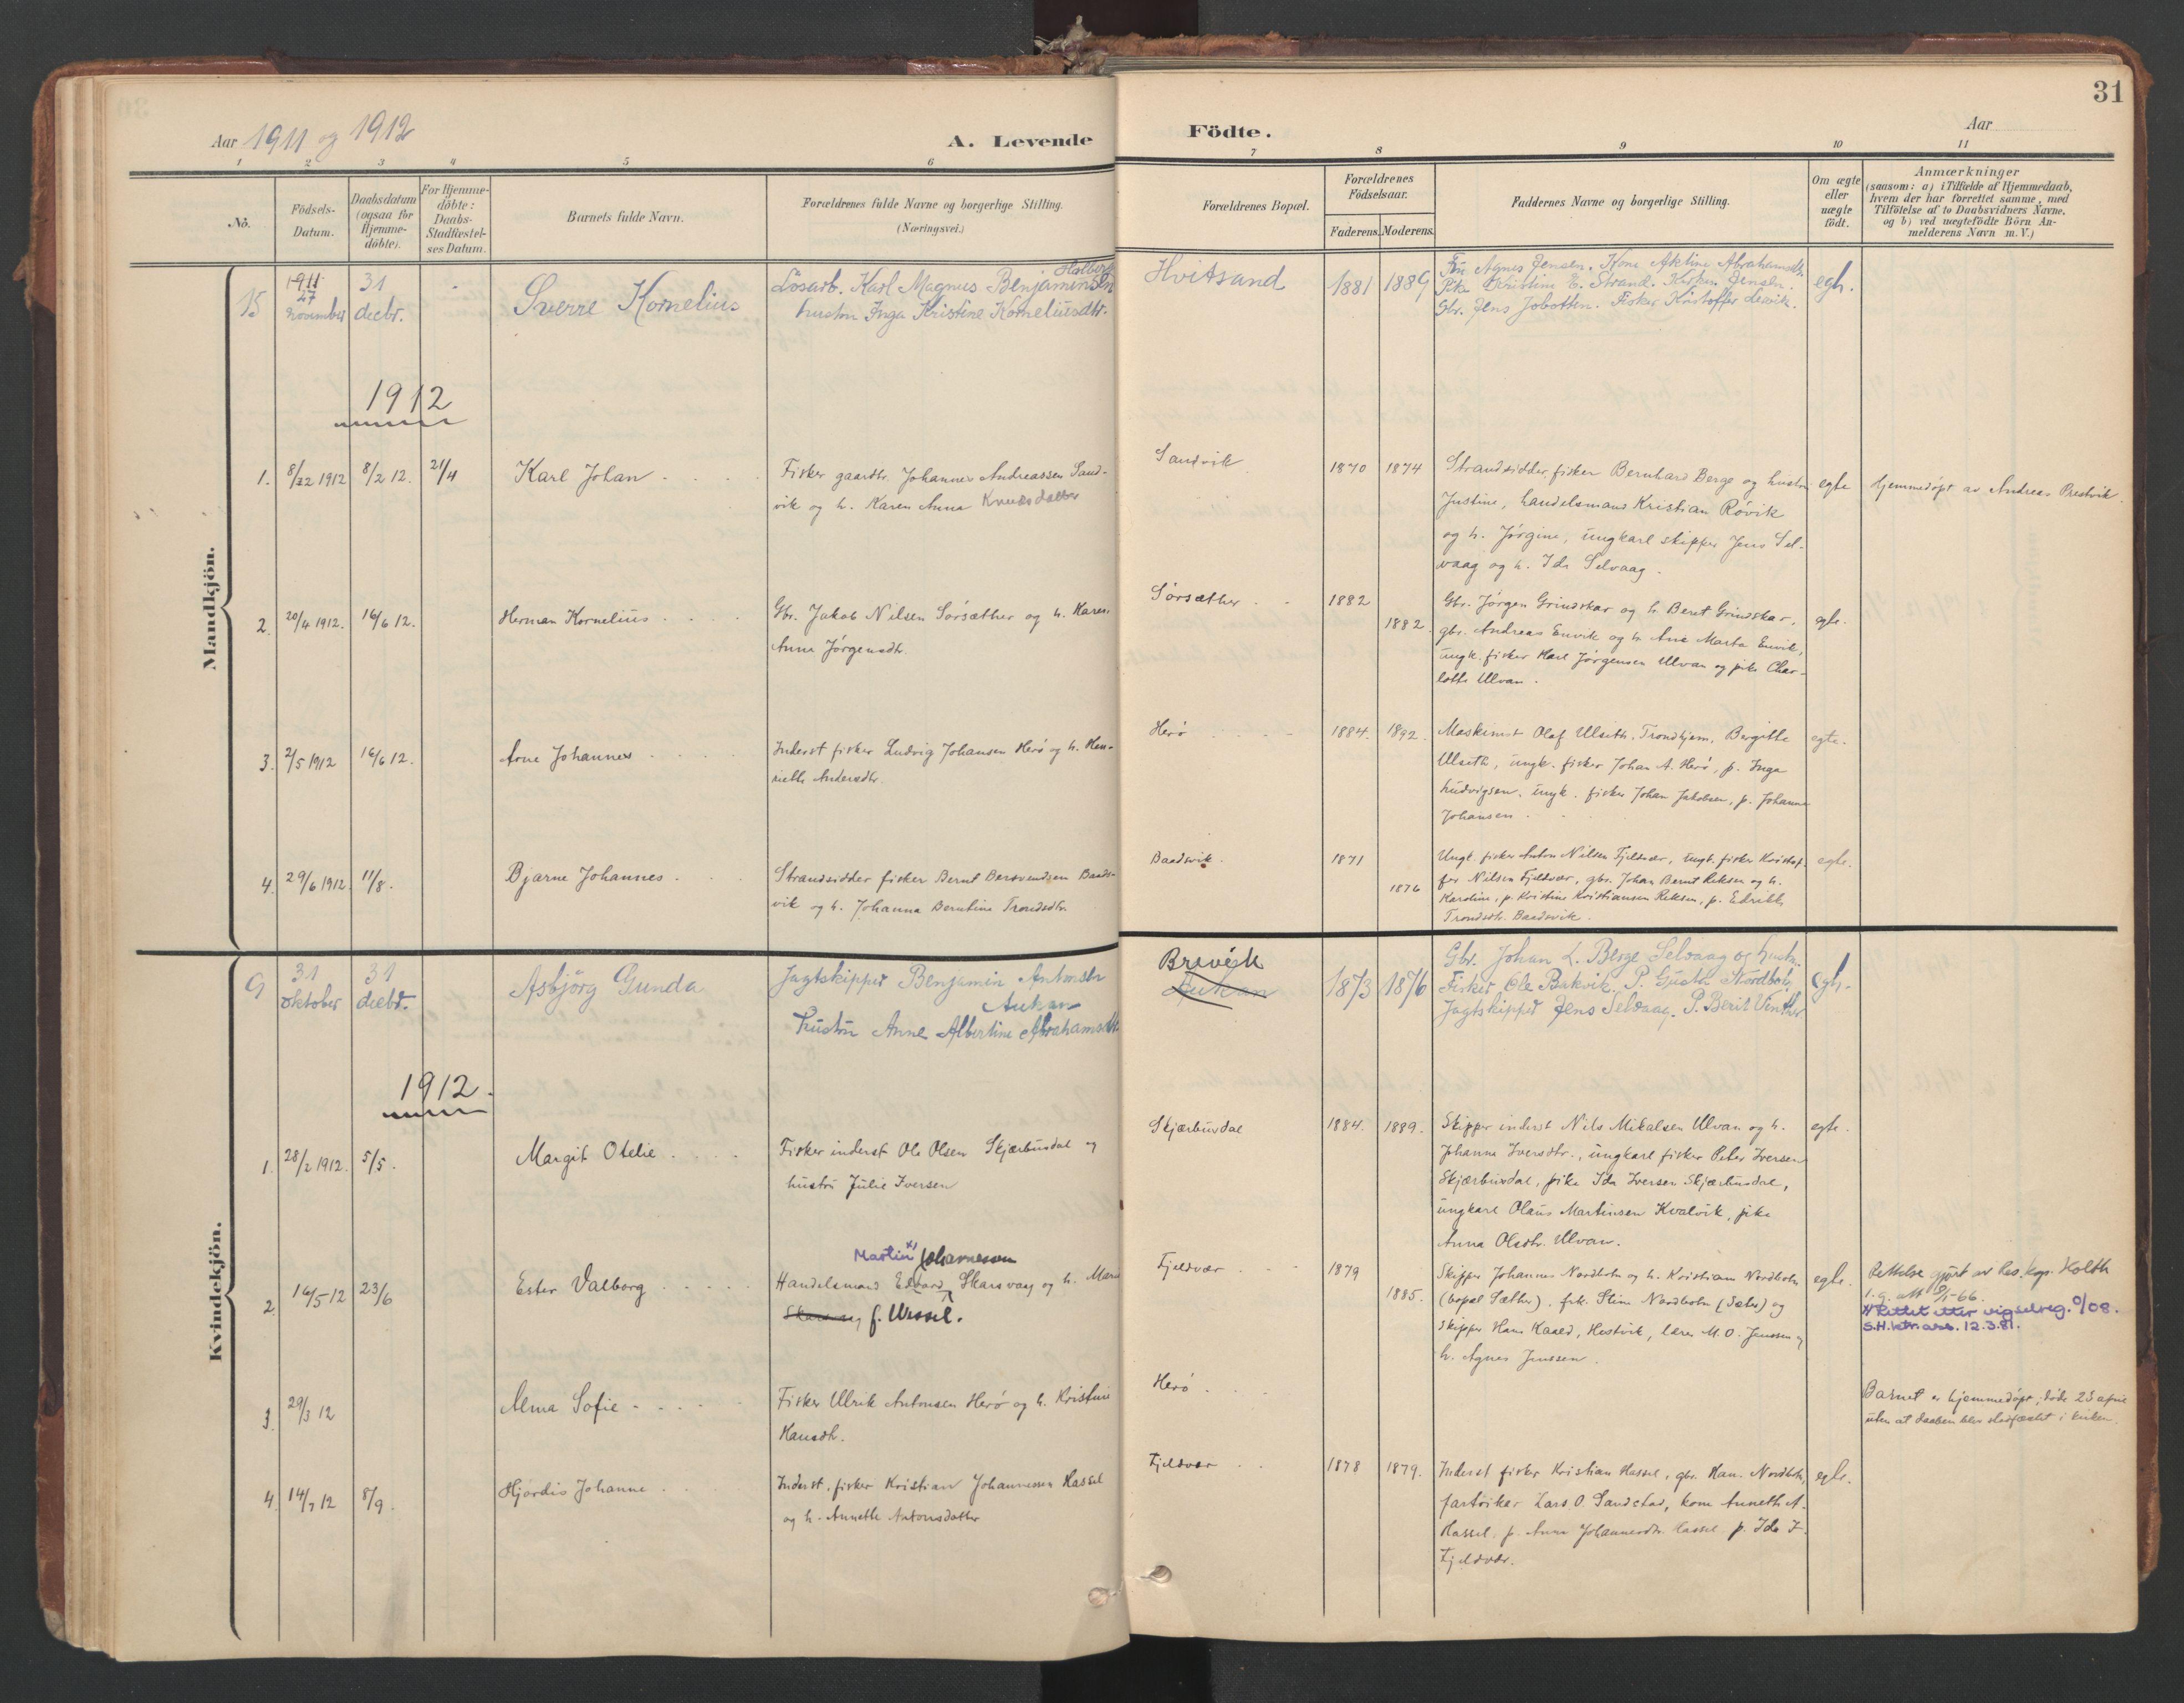 31
Aar 1911 og 1912
A. Levende Födte.
Aar
1 2 3 4 5 6 7 8 9 10 11
No.
Födsels-Datum.
Daabsdatum (ogsaa for Hjemme-döbte).
For Hjemme-döbte: Daabs-Stadfæstel-ses Datum.
Barnets fulde Navn.
Forældrenes fulde Navne og borgerlige Stilling.
(Næringsvei.)
Forældrenes Bopæl.
Forældrenes Födselsaar.
Faderens. Moderens.
Faddernes Navne og borgerlige Stilling.
Om ægte eller uægte födt.
Anmærkninger
(saasom: a) i Tilfælde af Hjemmedaab,
hvem der har forrettet samme, med
Tilföielse af to Daabsvidners Navne.
og b) ved uægtefödte Börn An-
melderens Navn m. V.)
Mandkjön.
15 1911 27 november
31 decbr.
Sverre Kornelius
Lösarb. Karl Magnus Benjaminsen
hustru Inga Kristine Korneliusdtr.
Hvitsand
1881 1889
Agnes Jensen. Kone Aktine Abrahamsdtr.
Pike Kristine E. Strand. Jensen.
Gbr. Jens Jobotten. Fisker Kristoffer Lervik.
egt.
1912
1. 8/12 1912 8/2 12. 21/4
Karl Johan
Fisker gaardbr. Johannes Andreassen Sand-
vik og h. Karen Anna Knudsdatter
Sandvik
1870 1874
Strandsidder fisker Bernhard Berge og hustru
Justine, handelsmand Kristian Røvik
og h. Jørgine, ungkarl skipper Jens Sel-
vaag og h. Ida Selvaag.
egte
hjemmedøpt av Andreas Prestvik.
2. 20/4 1912. 16/6 12.
Herman Kornelius
Gbr. Jakob Nilsen Sørsæther og h. Karen
Anna Jørgensdtr.
Sørsæther
1882 1882.
Gbr. Jørgen Grindskar og h. Beret Grindskar,
gbr. Andreas Envik og h. Ane Marta Envik,
ungk. fisker Karl Jørgensen Ulvan og pike Char-
lotte Ulvan.
egte.
3. 2/5 1912 16/6 12.
Arne Johannes
Inderst fisker Ludvig Johansen Herø og h. Hen-
riette Andersdtr.
Herø
1884. 1892.
Maskinist Olaf Ulseth, Trondhjem, Bergitte
Ulseth, ungk. fisker Johan A. Herø, p. Inga
Ludvigsen. ungk. fisker Johan Jakobsen, p. Johanna
Johansen.
egte.
4. 29/6 1912. 11/8.
Bjarne Johannes
Strandsidder fisker Bernt Bersvendsen Baads-
vik og h. Johanna Berntine Trondsdtr.
Baadsvik.
1871 1876
Ungk. fisker Anton Nilsen Fjeldvær, ungk. fisker Kristof-
fer Nilsen Fjeldvær, gbr. Johan Bernt Reksen og h.
Karoline, p. Kristine Kristiansen Reksen, p. Edrikke
Trondsdtr. Baadsvik.
egte.
Kvindekjön.
9 31 oktober 31 decbr.
Asbjörg Gunda
Jagtskipper Benjamin Antonsen
Aukan
hustru Anne Albertine Abrahamsdtr.
Brevik
Aukan
1873 1876
Gbr. Johan L. Berge Selvaag og hustru.
Fisker Ole Bakvik. P. Gusta Nordbotn.
Jagtskipper Jens Selvaag. P. Berit Vinther
egt.
1912.
1. 28/2 1912. 5/5.
Margit Otelie
Fisker inderst Ole Olsen Skjærbusdal og
hustru Julie Iversen
Skjærbusdal
1884. 1889.
Skipper inderst Nils Mikalsen Ulvan og h.
Johanna Iversdtr., ungkarl fisker Peter Iversen
Skjærbusdal, pike Ida Iversen Skjærbusdal,
ungkarl Olaus Martinsen Kvalvik, pike
Anna Olsdtr. Ulvan.
egte.
2 16/5 12 23/6
Ester Valborg
Martin x) Johannesen
Handelsmand Edvard Skarsvaag og h. Marie
Skarsvaag f. Wessel.
Fjeldvær
1879 1885.
Skipper Johannes Nordbotn og h. Kristiane Nordbotn
(bopæl Sæther), frk. Stine Nordbotn (Sæter) og
skipper Hans Kaald, Hestvik, lærer M. O. Jenssen og
h. Agnes Jenssen.
egte.
Rettelse gjort av Res. kap. Holth
x) Rettet etter vigselreg. 9/08.
S.H. 12.3.81.
3. 29/3 12
Alma Sofie
Fisker Ulrik Antonsen Herø og h. Kristine
Hansdtr.
Herø
Barnet er hjemmedøpt; døde 25 april
uten at daaben blev stadfæstet i kirken.
4. 14/7 12 8/9.
Hjørdis Johanne
Inderst, fisker Kristian Johannessen Hassel
og h. Annette Antonsdatter
Fjeldvær
1878 1879.
Inderst fisker Kristian Hassel, gbr. Han. Nordbotn,
Lars O. Sandstad, kone Anneth A.
Hassel, p. Anna Johannesdtr. Hassel, p. Ida J.
Fjeldvær.
egte.